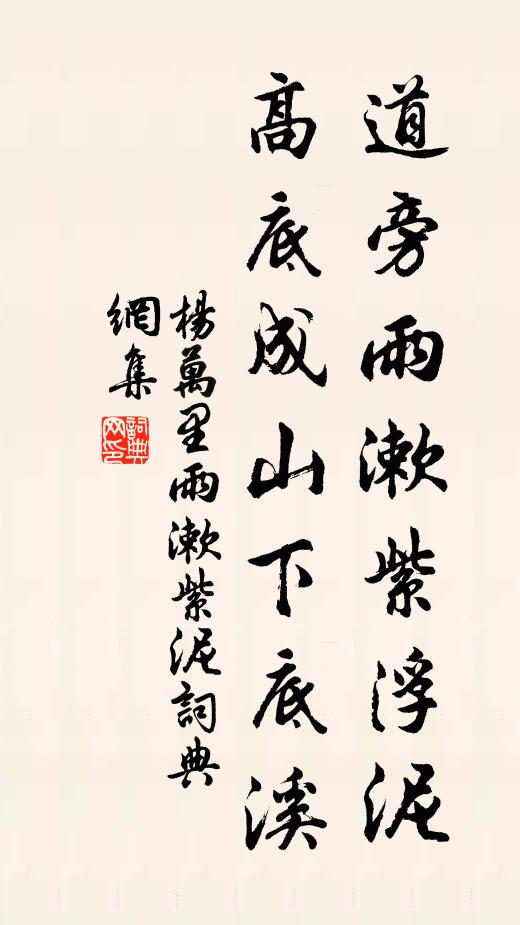 道旁雨漱紫浮泥
高底成山下底溪
楊萬里雨漱紫泥詞典
網集
詞典
网印